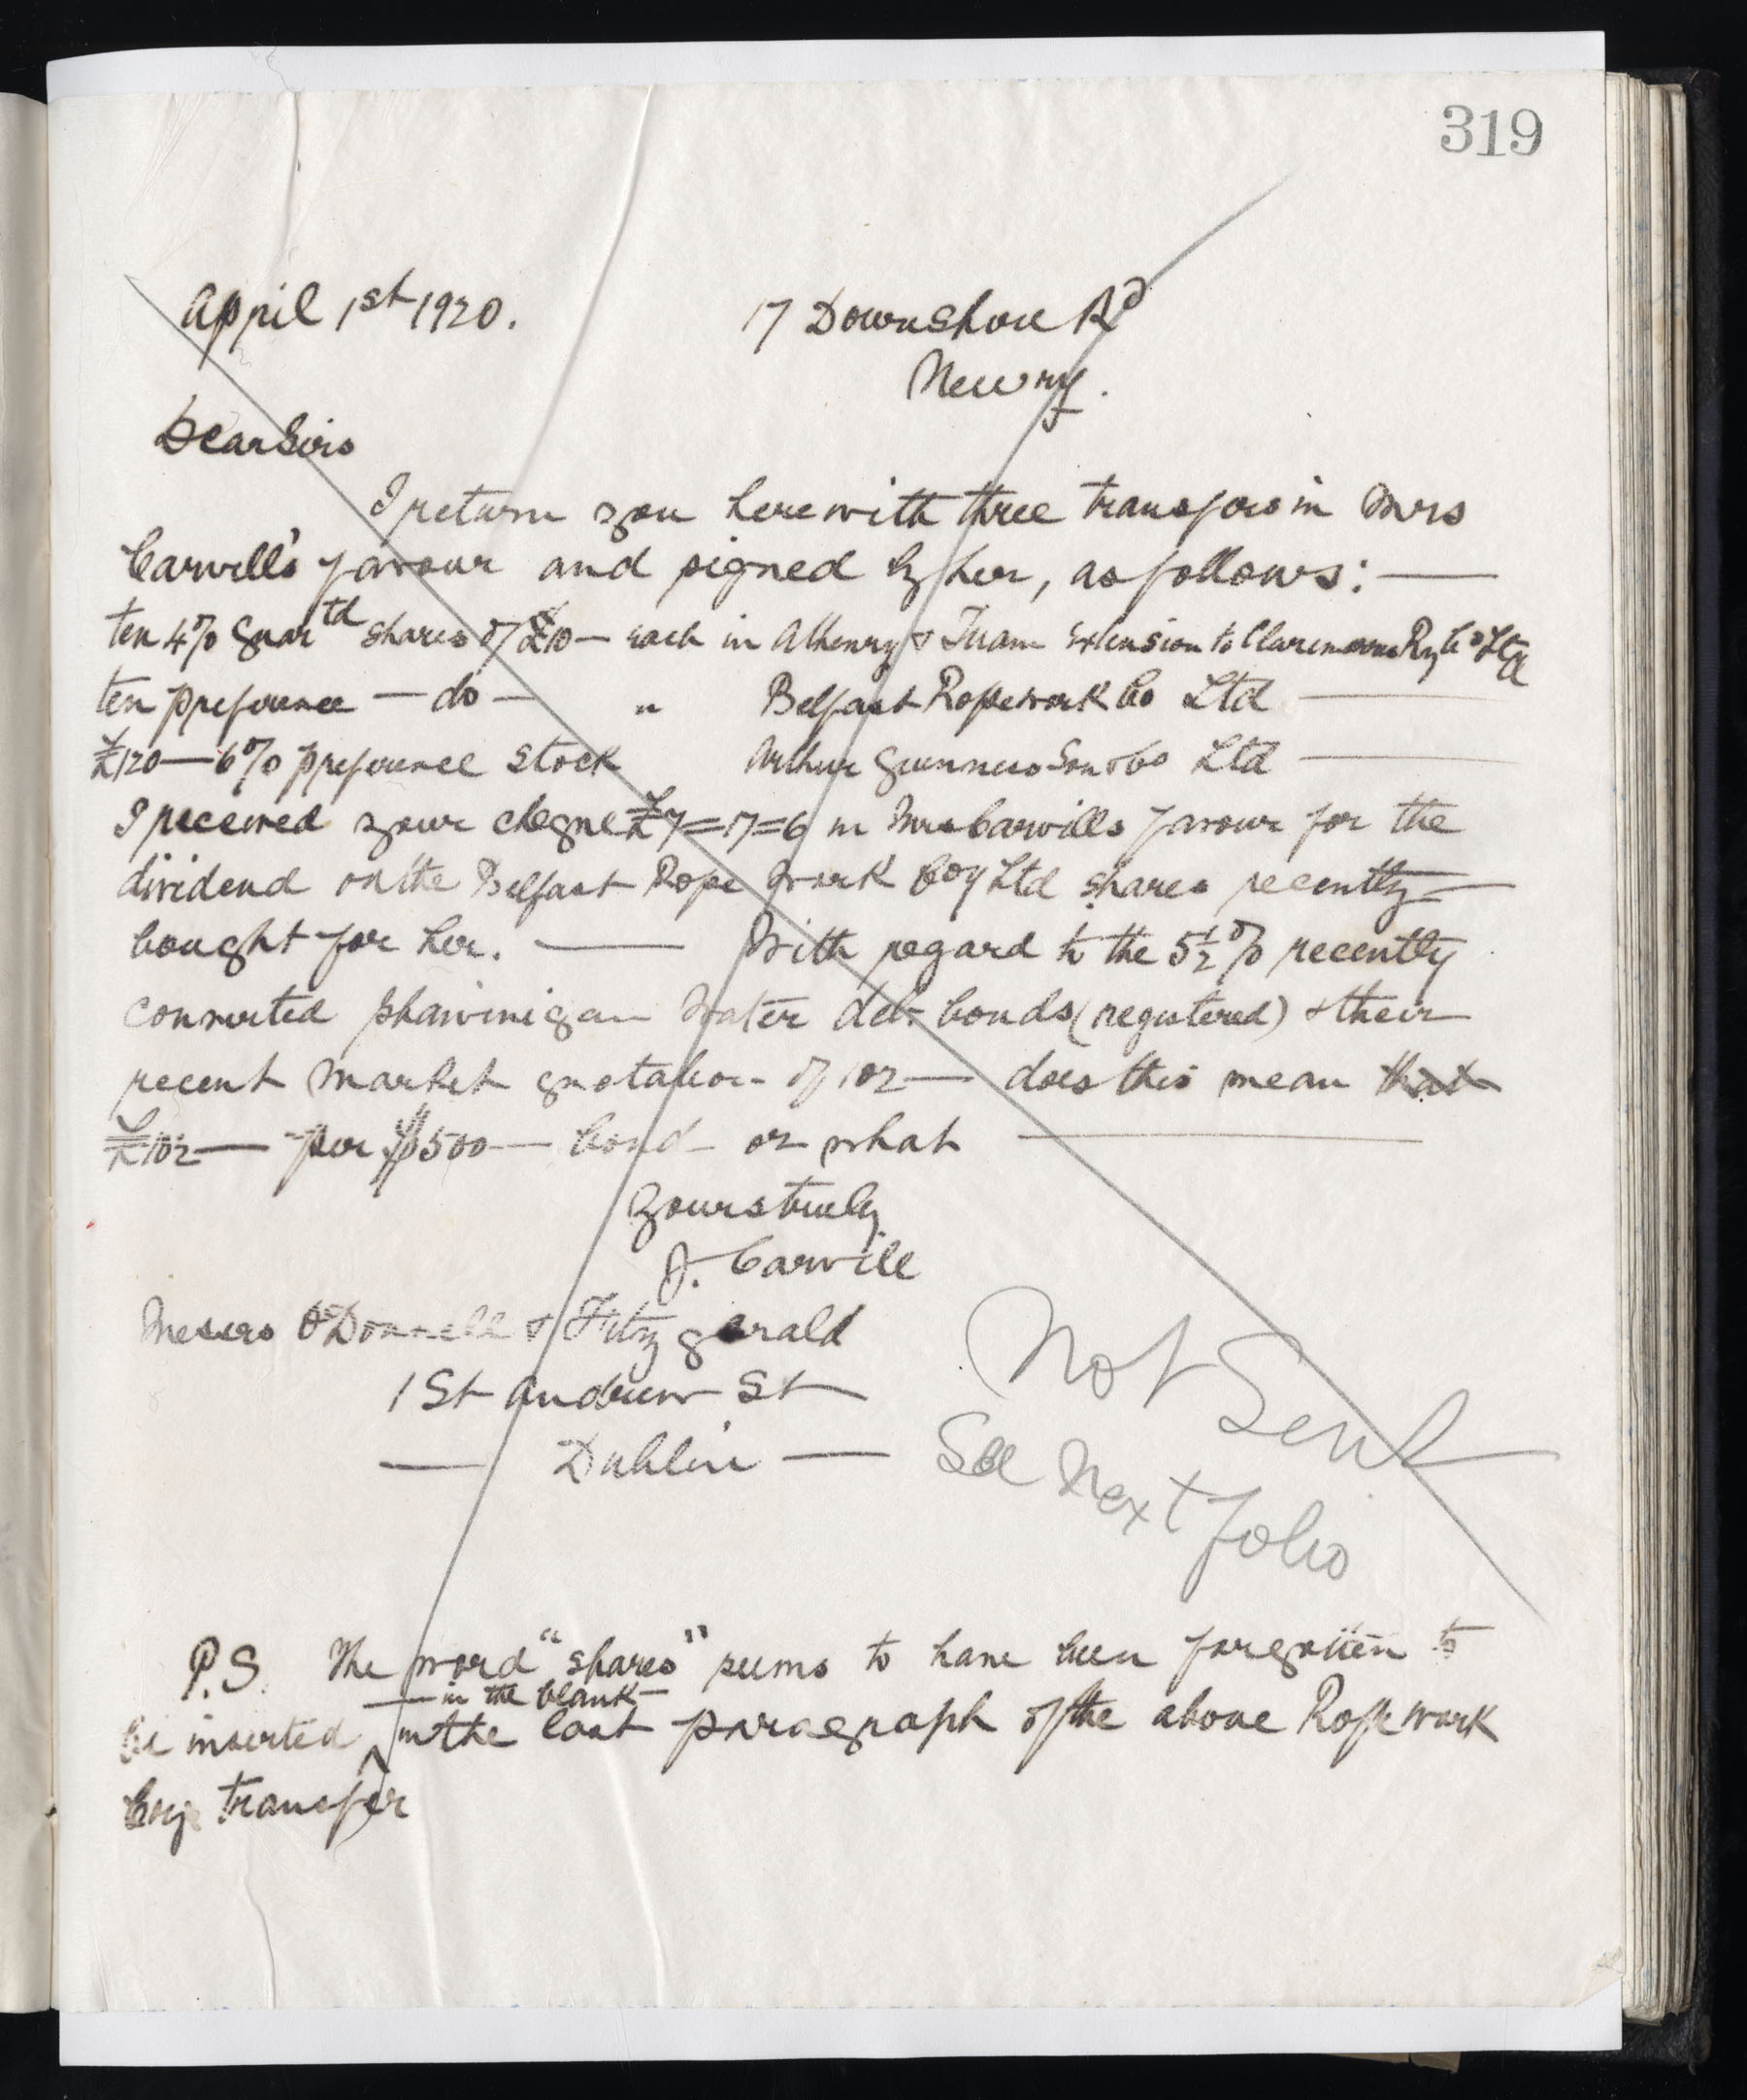 319
April 1st 1920.
17 Downshire Rd
Newry.
Dear Sirs
I return you herewith three transfers in Mrs
Carvill's favour and signed by her, as follows: —
ten 4% Guartd shares of £10 — each in Athenry & Tuam Extension to Claremorris Ry Co Ltd
ten preference — do — " Belfast Ropework Co Ltd —
£120 — 6% preference stock Arthur Guinness Son & Co Ltd —
I received your cheque £7=17=6 in Mrs Carvills favour for the
dividend on the Belfast Rope Work Coy Ltd shares recently —
bought for her. — With regard to the 5½% recently
converted Shawinigan Water deb. bonds (registered) & their
recent market quotation of 102 — does this mean that
£102 — per $500 — bond or what —
Yours truly
J. Carvill
Messrs O'Donnell & Fitzgerald
1 St Andrew St
— Dublin —
Not Sent
See Next folio
P.S. The word "shares" seems to have been forgotten to
— in the blank —
be inserted in the last paragraph of the above Rope Work
Coy transfer